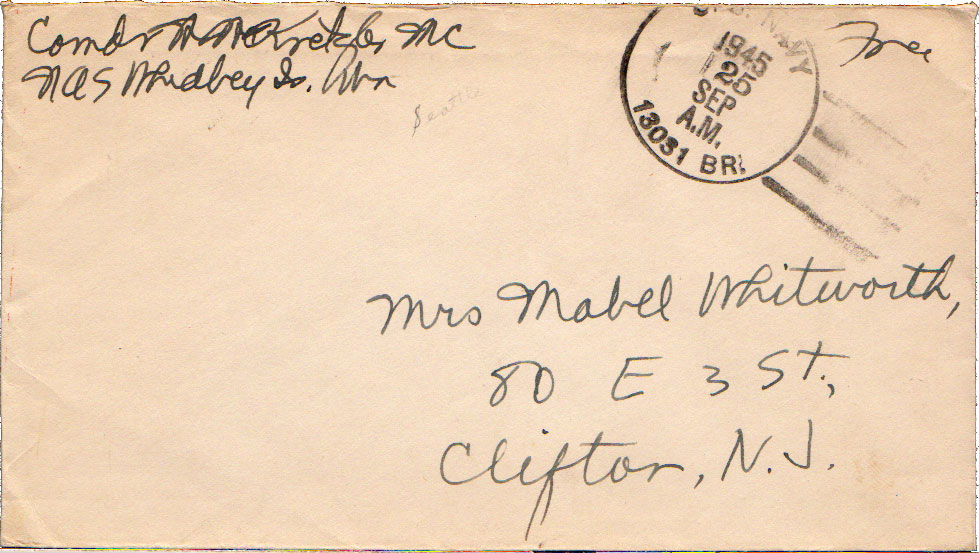 Comdr MC
NAS Whidbey Is. Wn
Seattle
Free
U.S. NAVY
1945
25
SEP
A.M.
13031 BR.
Mrs Mabel Whitworth,
80 E 3 St.,
Clifton, N.J.